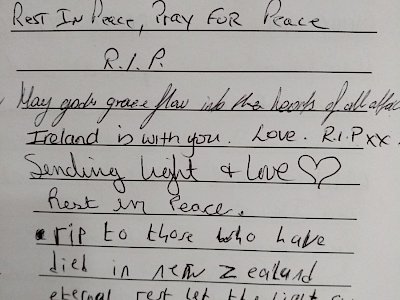 Rest In Peace, Pray FOR Peace
R.I.P.
May gods grace flow into the hearts of all
Ireland is with you. Love. R.I.P xx.
Sending light & Love ♡
Rest in Peace.
rip to those who have
died in new zealand
eternal rest let the light